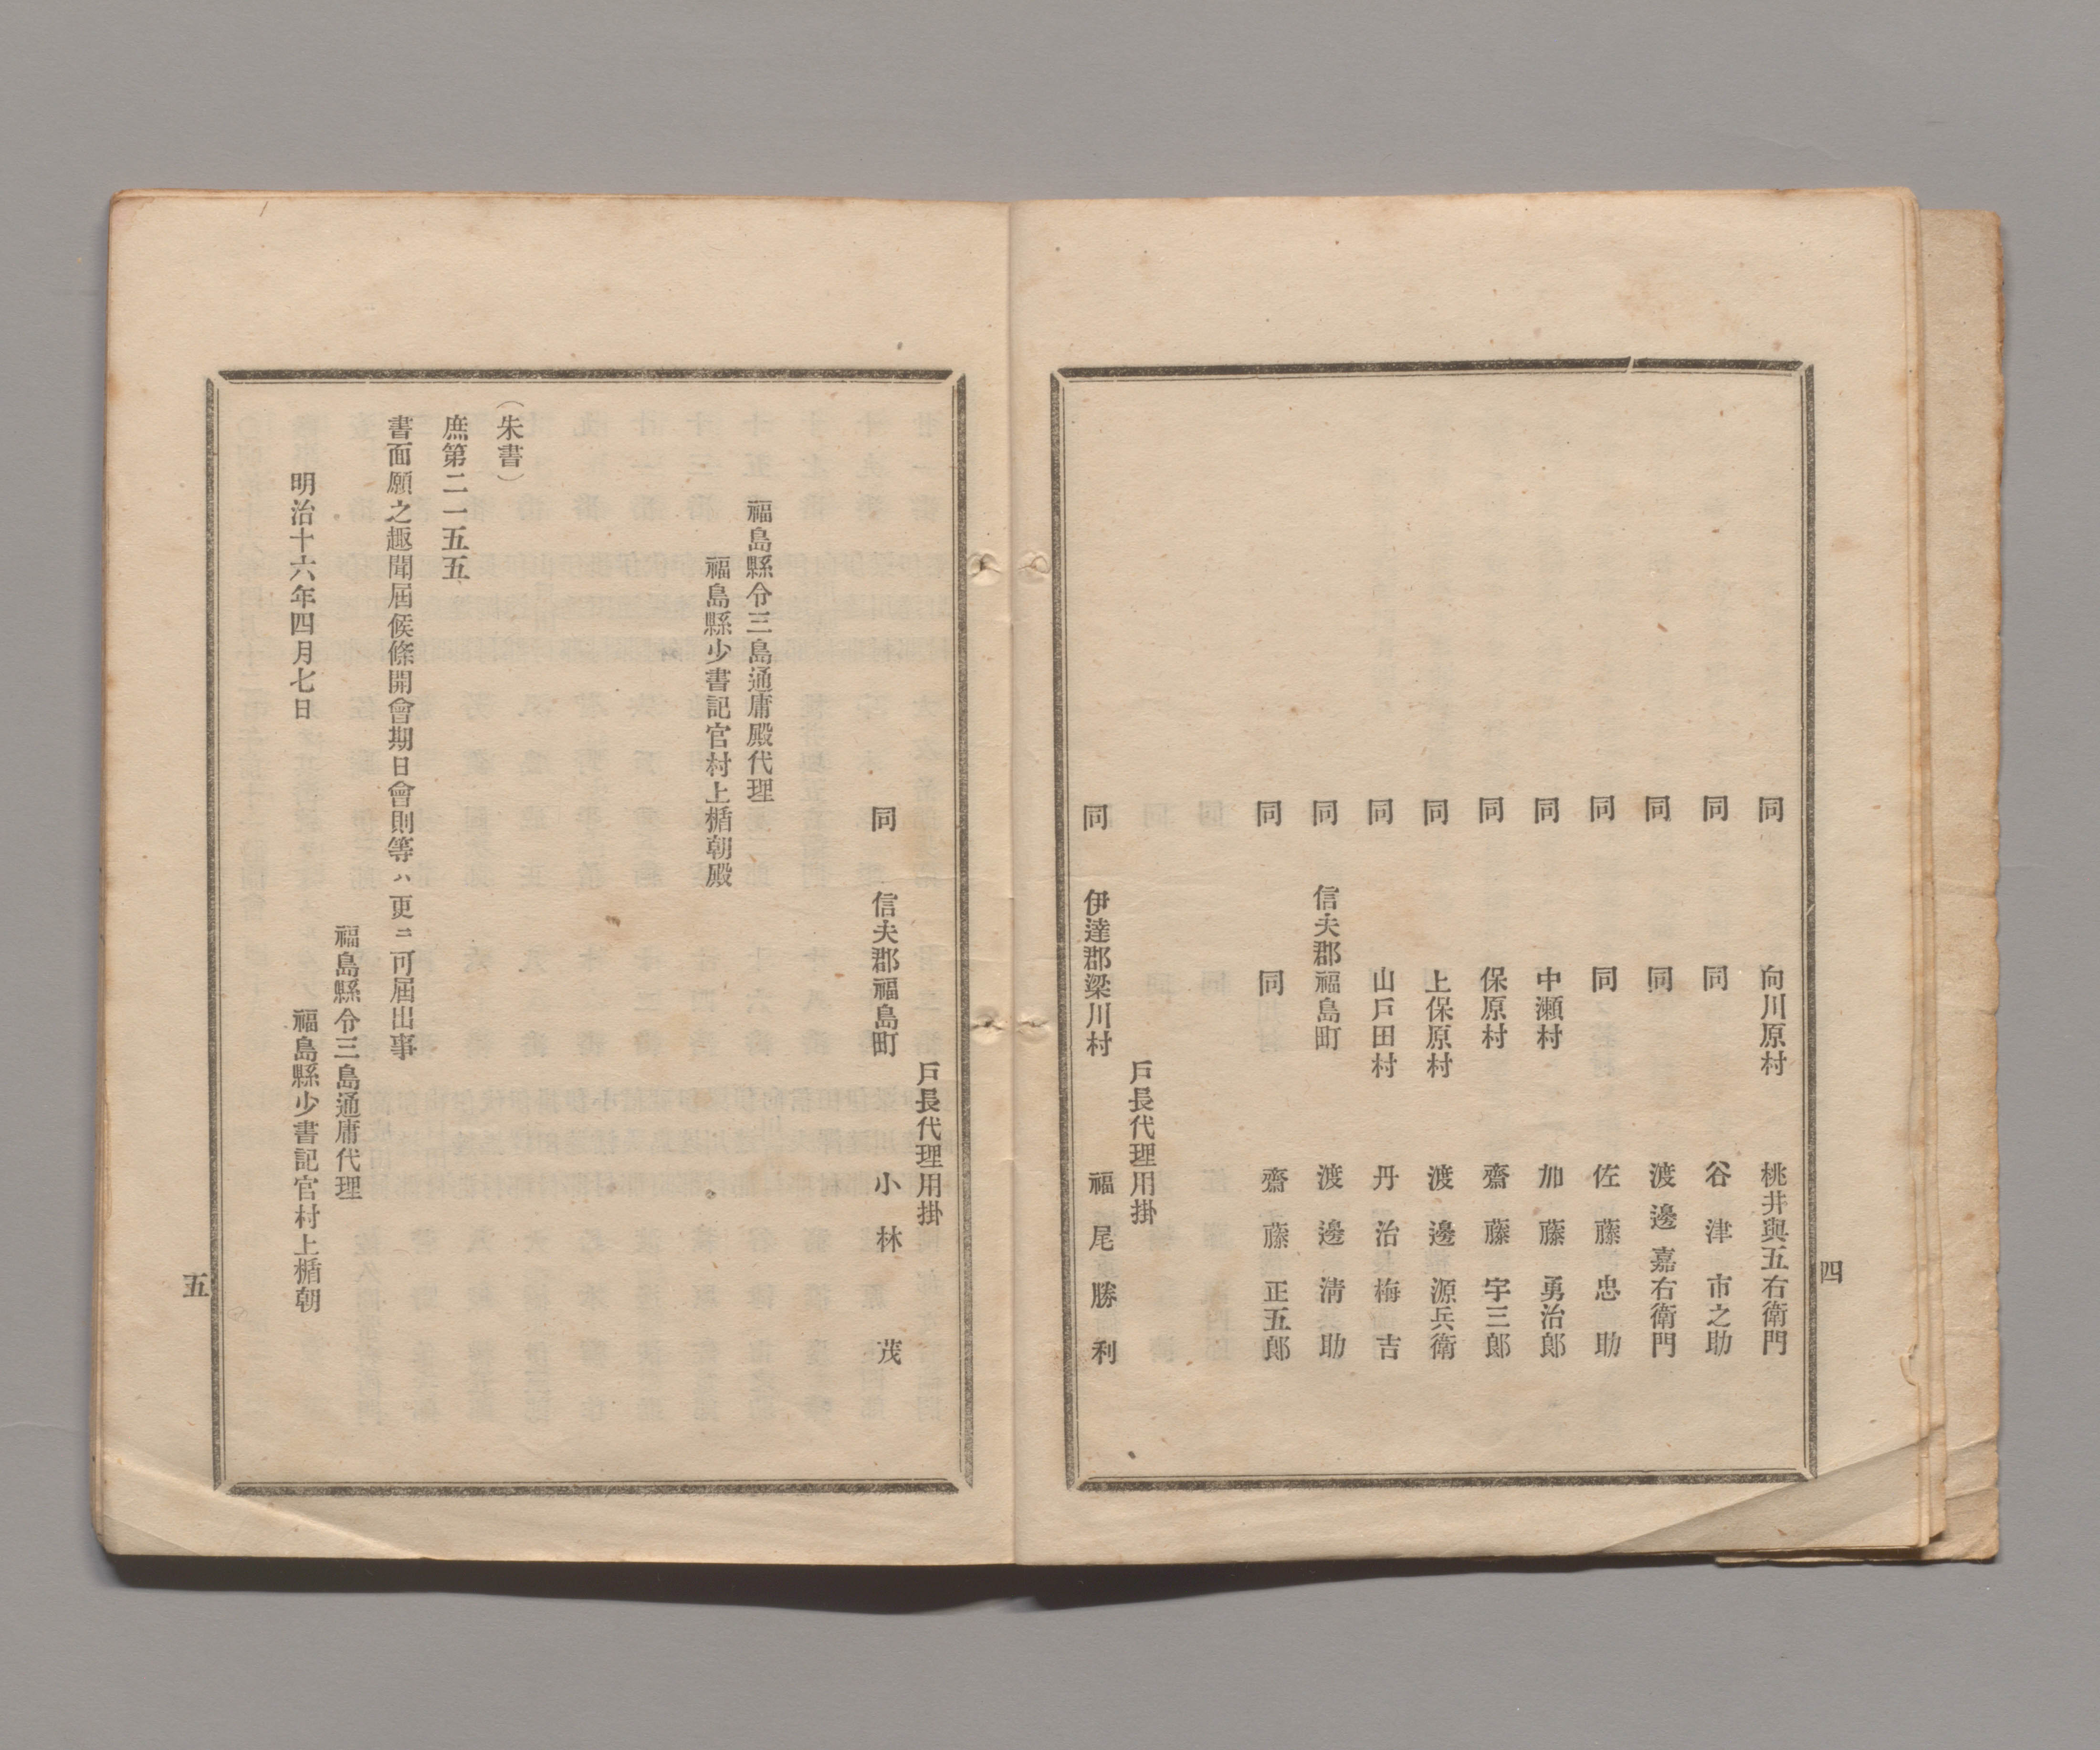 四
同 向川原村 桃井與五右衛門
同 同 谷津市之助
同 同 渡邊嘉右衛門
同 同 佐藤忠助
同 中瀬村 加藤勇治郎
同 保原村 齋藤宇三郎
同 上保原村 渡邊源兵衛
同 山戸田村 丹治梅吉
同 信夫郡福島町 渡邊清助
同 同 齋藤正五郎
戸長代理用掛
同 伊達郡梁川村 福尾勝利
戸長代理用掛
同 信夫郡福島町 小林茂
福島縣令三島通庸殿代理
福島縣少書記官村上楯朝殿
（朱書）
庶第二一五五
書面願之趣聞届候條開會期日會則等ハ更ニ可届出事
福島縣令三島通庸代理
明治十六年四月七日 福島縣少書記官村上楯朝
五